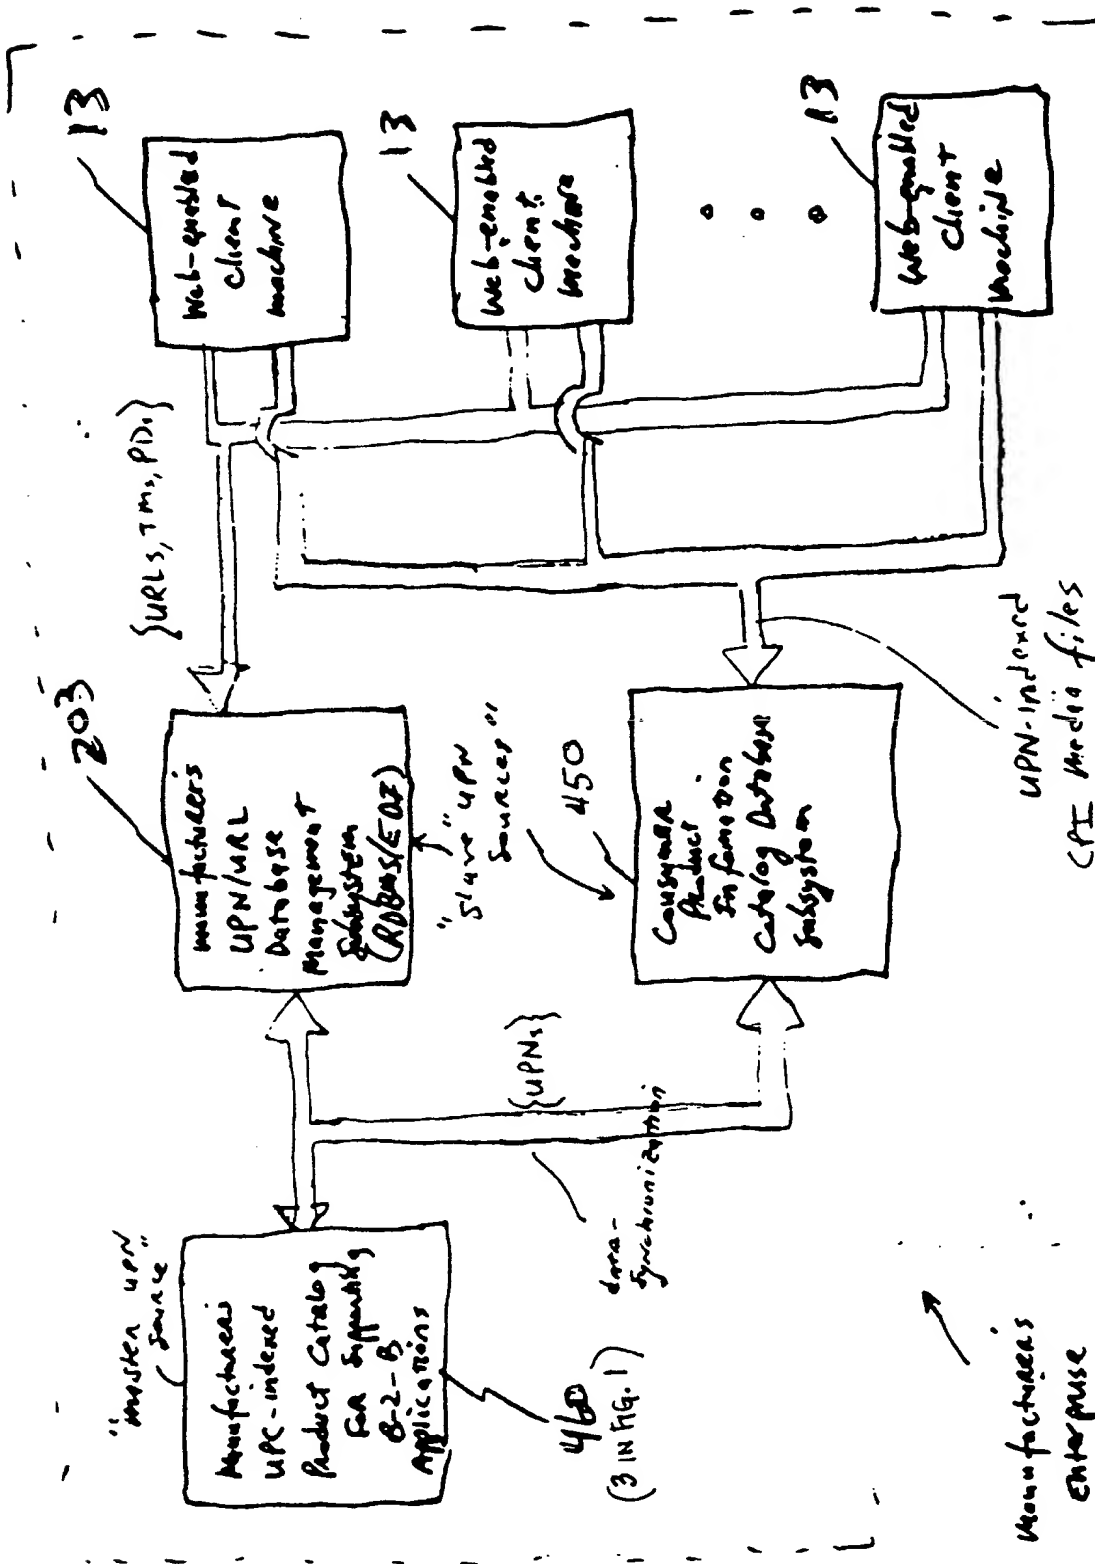 "master UPN
source"
Manufacturers
UPC-indexed
Product Catalog
For Supporting
B-2-B
Applications
460
(3 IN FIG. 1)
data-
synchronization
{UPNs}
203
manufacturers
UPN/URL
Database
Management
Subsystem
(RDBMS/EDI)
"slave" UPN
sources"
450
Consumer
Product
Information
Catalog Database
Subsystem
{URLs, TMs, PDs}
13
Web-enabled
Client
machine
13
Web-enabled
Client
machine
13
Web-enabled
Client
machine
UPN-indexed
CPI media files
Manufacturers
Enterprise